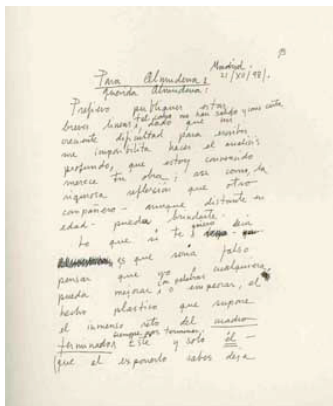 Madrid.
21/XII/98.
Para Almudena:
Querida Almudena:
Prefiero publiques estas
breves líneas, tal cual me han salido y como
creciente dificultad para escribir
me imposibilita hacer el análisis
profundo, que estoy convencido
merece tu obra; así como, la
rigurosa reflexión que otro
compañero - aunque distante en
edad - pueda brindarte.
Lo que si te quiero
es que sería falso
pensar que yo (o palabras cualquiera)
pueda mejorar, o empeorar, el
hecho plástico que supone
el inmenso reto del cuadro
siempre por terminar.
terminado. Este y solo él -
(que al exponerlo sabes deja